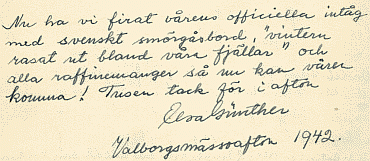 Nu ha vi firat vårens officiella intåg
med svenskt smörgåsbord, "vintern
rasat ut bland våra fjällar" och
alla raffinemanger så nu kan våren
komma! Tusen tack för i afton
Elsa Günther
Valborgsmässoafton 1942.